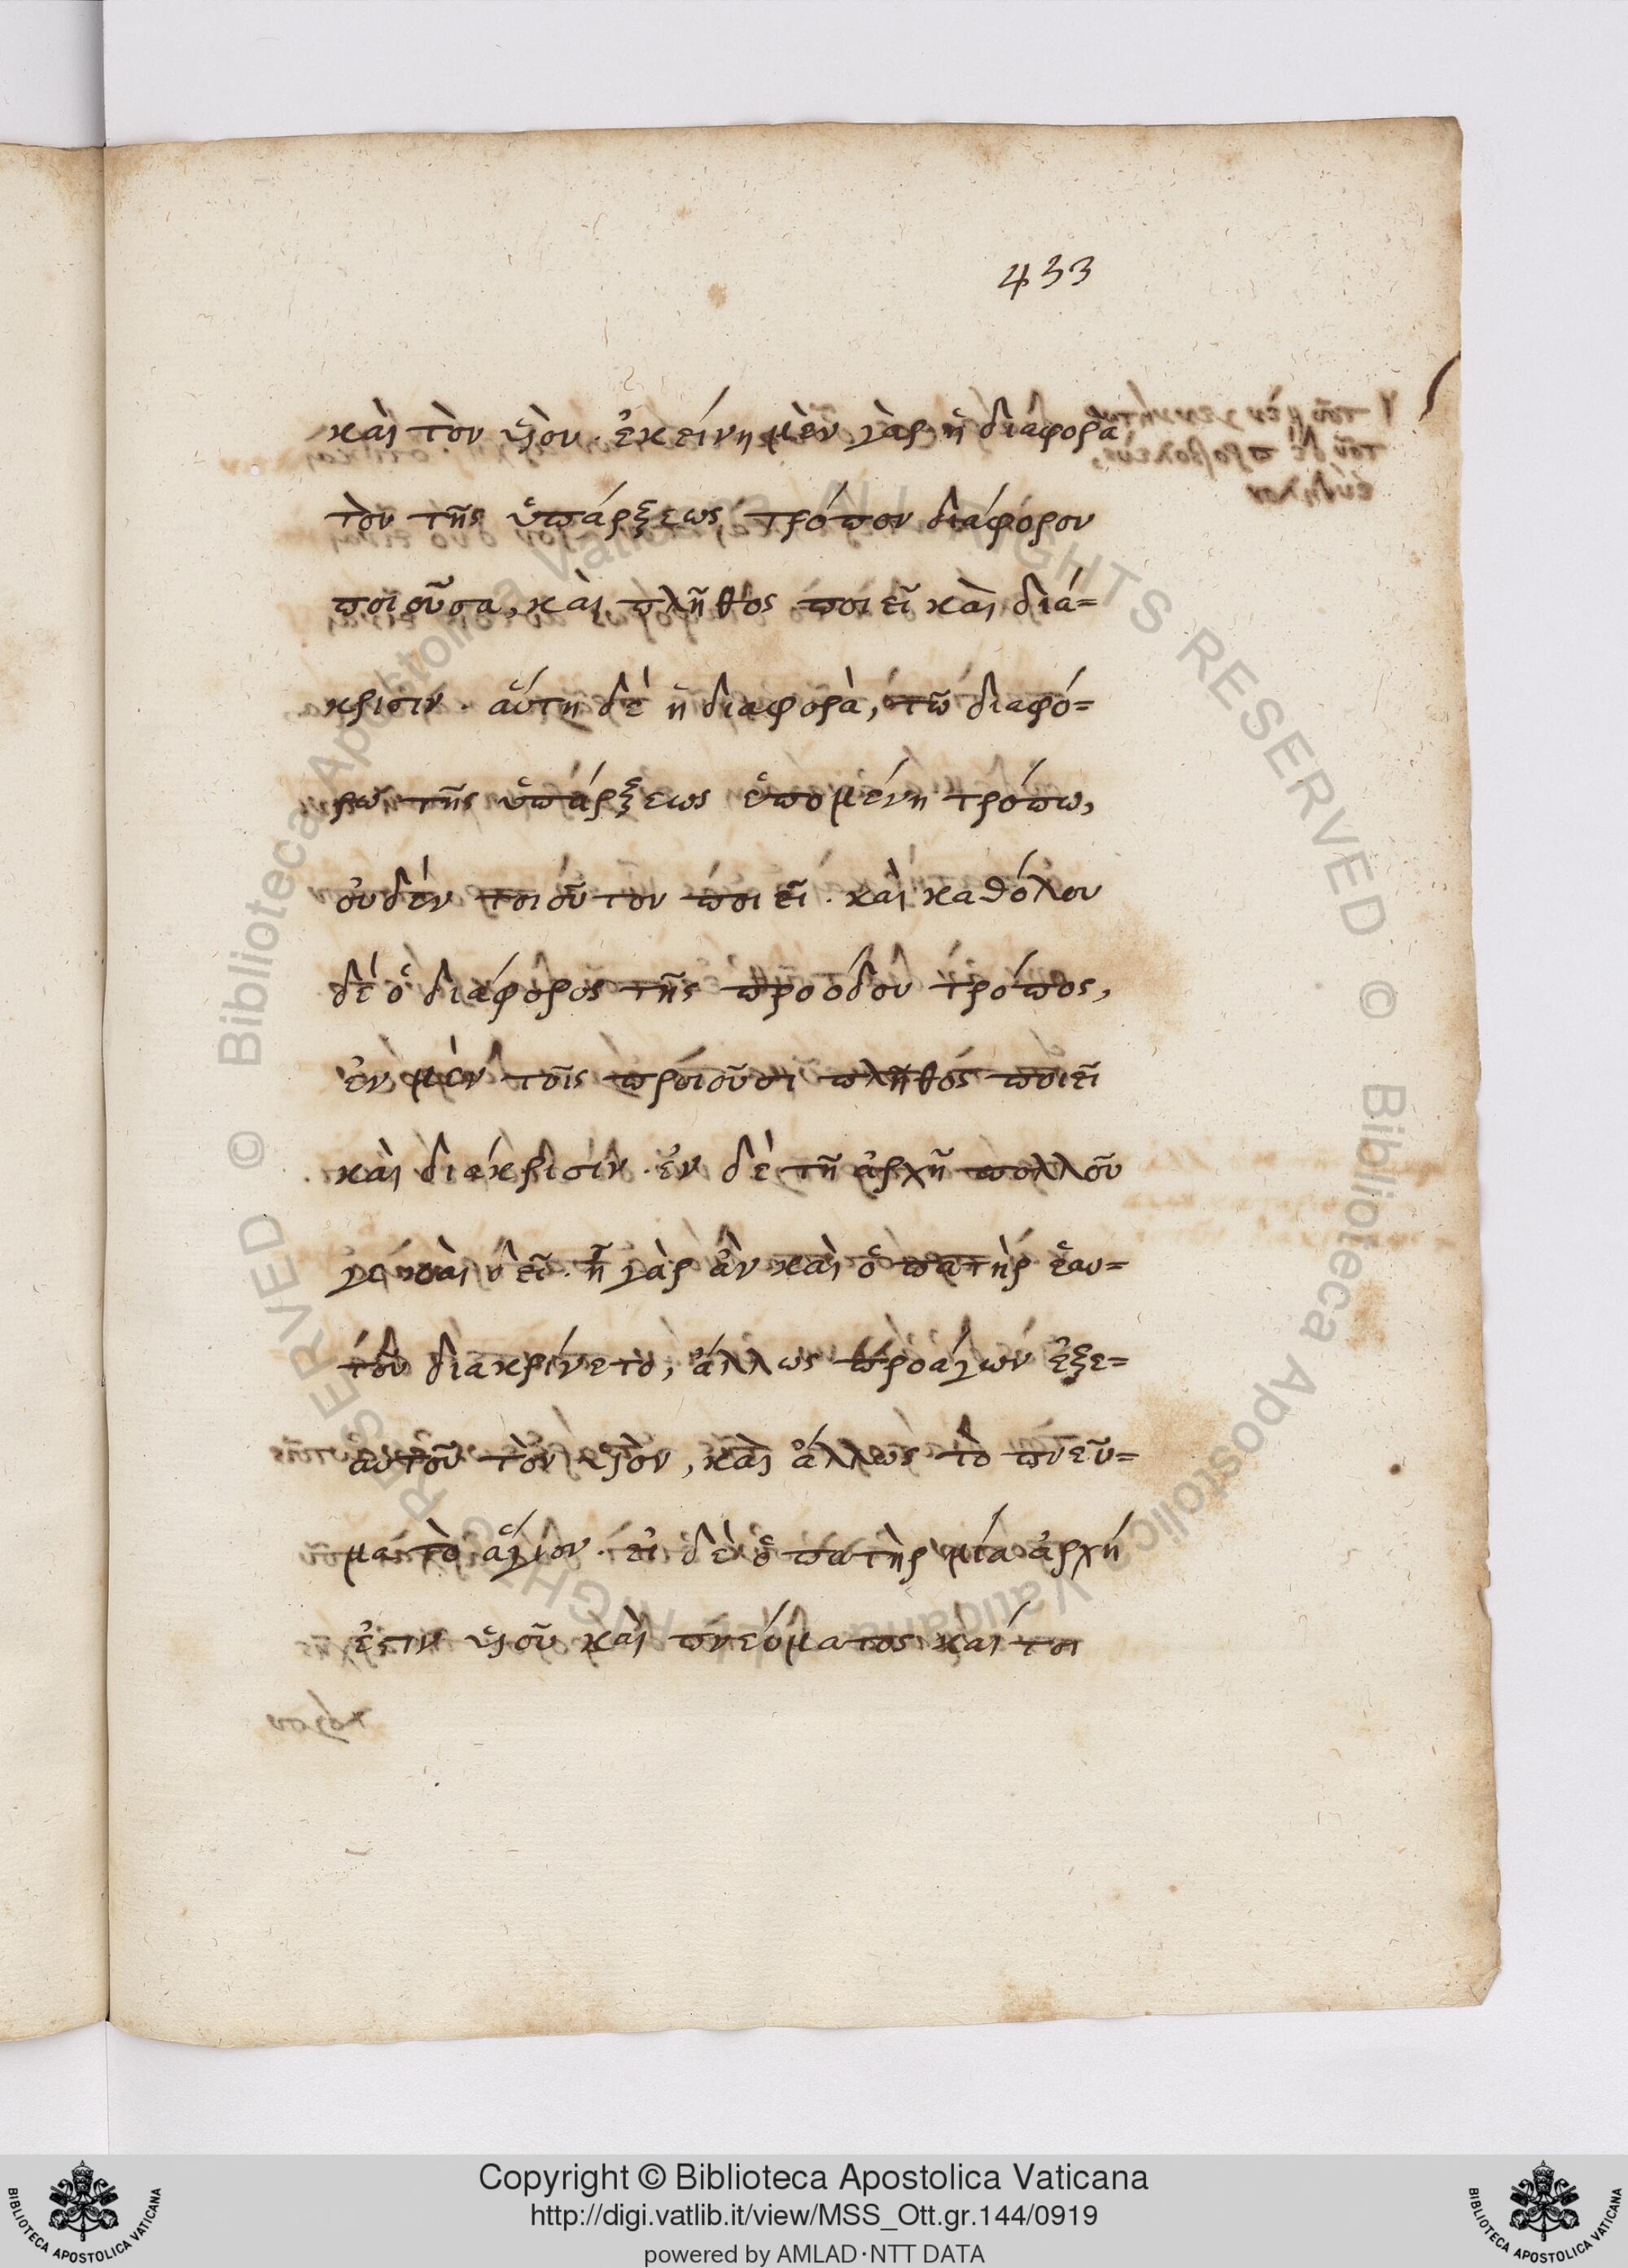 433
καὶ τὸν υἱόν. ἐκείνη μὲν γὰρ ἡ διαφορὰ
τὸν τῆς ὑπάρξεως τρόπον διάφορον
ποιοῦσα, καὶ πλῆθος ποιεῖ καὶ διά=
κρισιν. αὕτη δὲ ἡ διαφορὰ, τῶ διαφό=
ρω τῆς ὑπάρξεως ἑπομένη τρόπω,
οὐδὲν τοιοῦτον ποιεῖ. καὶ καθόλου
δὲ ὁ διάφορος τῆς προόδου τρόπος,
ἐν μὲν τοῖς προϊοῦσι πλῆθος ποιεῖ
καὶ διάκρισιν. ἐν δὲ τῆ ἀρχῆ πολλοῦ
γε καὶ δεῖ. ἦ γὰρ ἂν καὶ ὁ πατὴρ ἑαυ=
τοῦ διακρίνετο, ἄλλως προάγων ἐξε=
αυτοῦ τὸν υἱὸν, καὶ ἄλλως τὸ πνεῦ=
μα τὸ ἅγιον. εἰ δὲ ὁ πατὴρ μία ἀρχή
ἐστιν υἱοῦ καὶ πνεύματος καίτοι
Copyright © Biblioteca Apostolica Vaticana
http://digi.vatlib.it/view/MSS_Ott.gr.144/0919
powered by AMLAD·NTT DATA